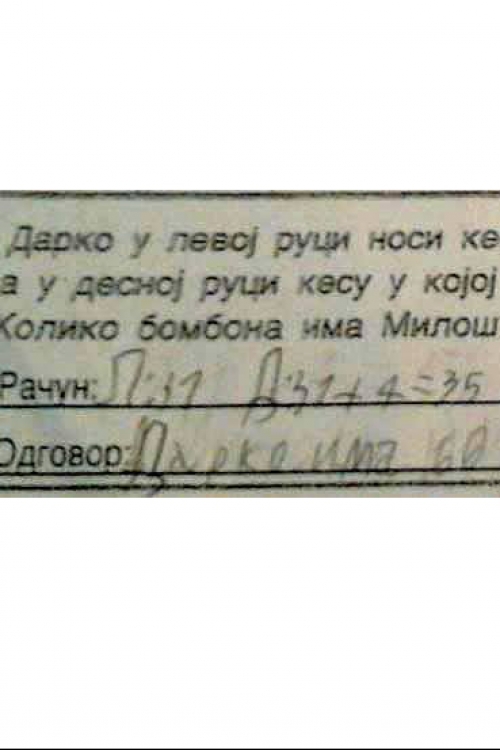 Дарко у левој руци носи ке
а у десној руци кесу у којој
Колико бомбона има Милош
Рачун: Л:31 Д:31+4=35
Одговор: Дарко има 66